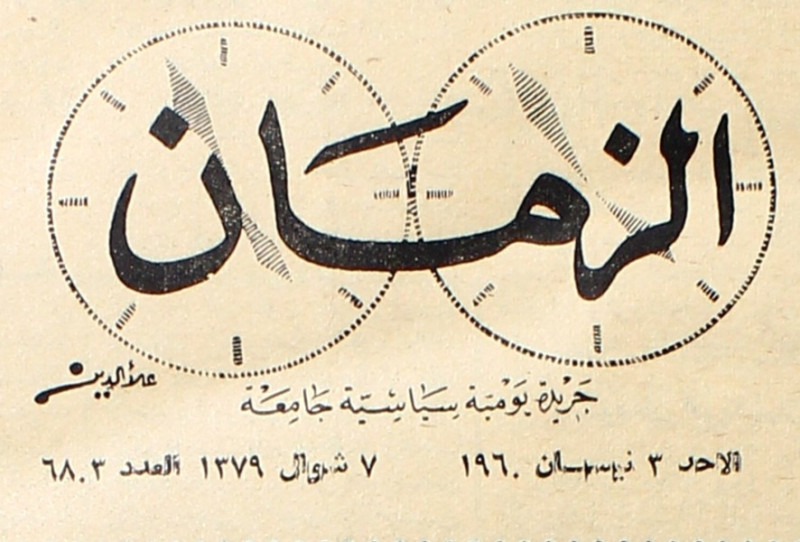 الزمان
علاءالدين
جريدة يومية سياسية جامعة
الاحد ٣ نيسان ١٩٦٠ ٧ شوال ١٣٧٩ العدد ٦٨٠٣